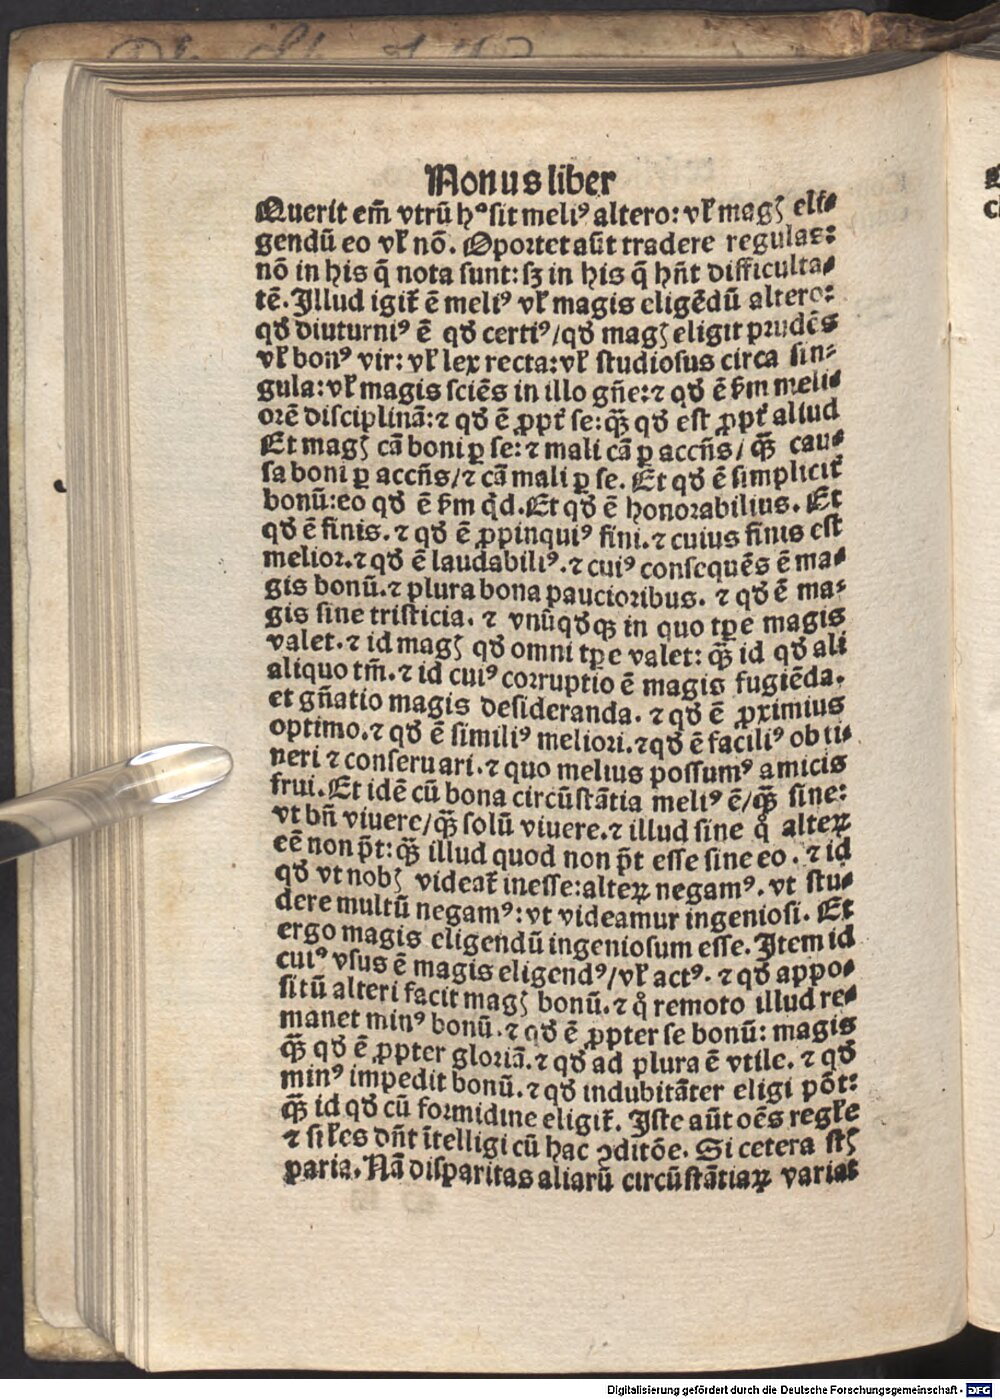 Nonus liber
Querit em̄ vtrū hº sit meliꝰ altero: vł magꝭ eli⸗
gendū eo vł nō. Oportet aūt tradere regulas:
nō in his q̄ nota sunt: sꝫ in his q̄ hn̄t difficulta⸗
tē. Illud igit̃ ē meliꝰ vł magis eligēdū altero:
qď diuturniꝰ ē qď certiꝰ/qď magꝭ eligit prudēs
vł bonꝰ vir: vł lex recta: vł studiosus circa sin⸗
gula: vł magis sciēs in illo gn̄e: ⁊ qď ē ẜm meli⸗
orē disciplinā: ⁊ qď ē ꝓpt̃ se: q̄ꝫ qď est ꝓpt̃ aliud
Et magꝭ cā boni ꝑ se: ⁊ mali cā ꝑ accn̄s/ q̄ꝫ cau⸗
sa boni ꝑ accn̄s/⁊ cā mali ꝑ se. Et qď ē simplicit̃
bonū: eo qď ē ẜm qd̄. Et qď ē honorabilius. Et
qď ē finis. ⁊ qď ē ꝓpinquiꝰ fini. ⁊ cuius finis est
melior. ⁊ qď ē laudabiliꝰ. ⁊ cuiꝰ consequēs ē ma⸗
gis bonū. ⁊ plura bona paucioribus. ⁊ qď ē ma⸗
gis sine tristicia. ⁊ vnūqďqꝫ in quo tꝑe magis
valet. ⁊ id magꝭ qď omni tꝑe valet: q̄ꝫ id qď ali
aliquo tm̄. ⁊ id cuiꝰ corruptio ē magis fugiēda.
et gn̄atio magis desideranda. ⁊ qď ē ꝓximius
optimo. ⁊ qď ē similiꝰ meliori. ⁊ qď ē faciliꝰ obti⸗
neri ⁊ conseruari. ⁊ quo melius possumꝰ amicis
frui. Et idē cū bona circūstātia meliꝰ ē/q̄ꝫ sine:
vt bn̄ viuere/q̄ꝫ solū viuere. ⁊ illud sine qͦ alteꝝ
eē non p̄t: q̄ꝫ illud quod non p̄t esse sine eo. ⁊ id
qď vt nobꝭ videat̃ inesse: alteꝝ negamꝰ. vt stu⸗
dere multū negamꝰ: vt videamur ingeniosi. Et
ergo magis eligendū ingeniosum esse. Item id
cuiꝰ vsus ē magis eligendꝰ/vł actꝰ. ⁊ qď appo⸗
sitū alteri facit magꝭ bonū. ⁊ qͦ remoto illud re⸗
manet minꝰ bonū. ⁊ qď ē ꝓpter se bonū: magis
q̄ꝫ qď ē ꝓpter gloriā. ⁊ qď ad plura ē vtile. ⁊ qď
minꝰ impedit bonū. ⁊ qď indubitāter eligi pōt:
q̄ꝫ id qď cū formidine eligit̃. Iste aūt oēs regłe
⁊ siłes dn̄t ītelligi cū hac ꝯditōe. Si cetera stꝭ
paria. Nā disparitas aliarū circūstātiaꝝ variat
Digitalisierung gefördert durch die Deutsche Forschungsgemeinschaft - DFG